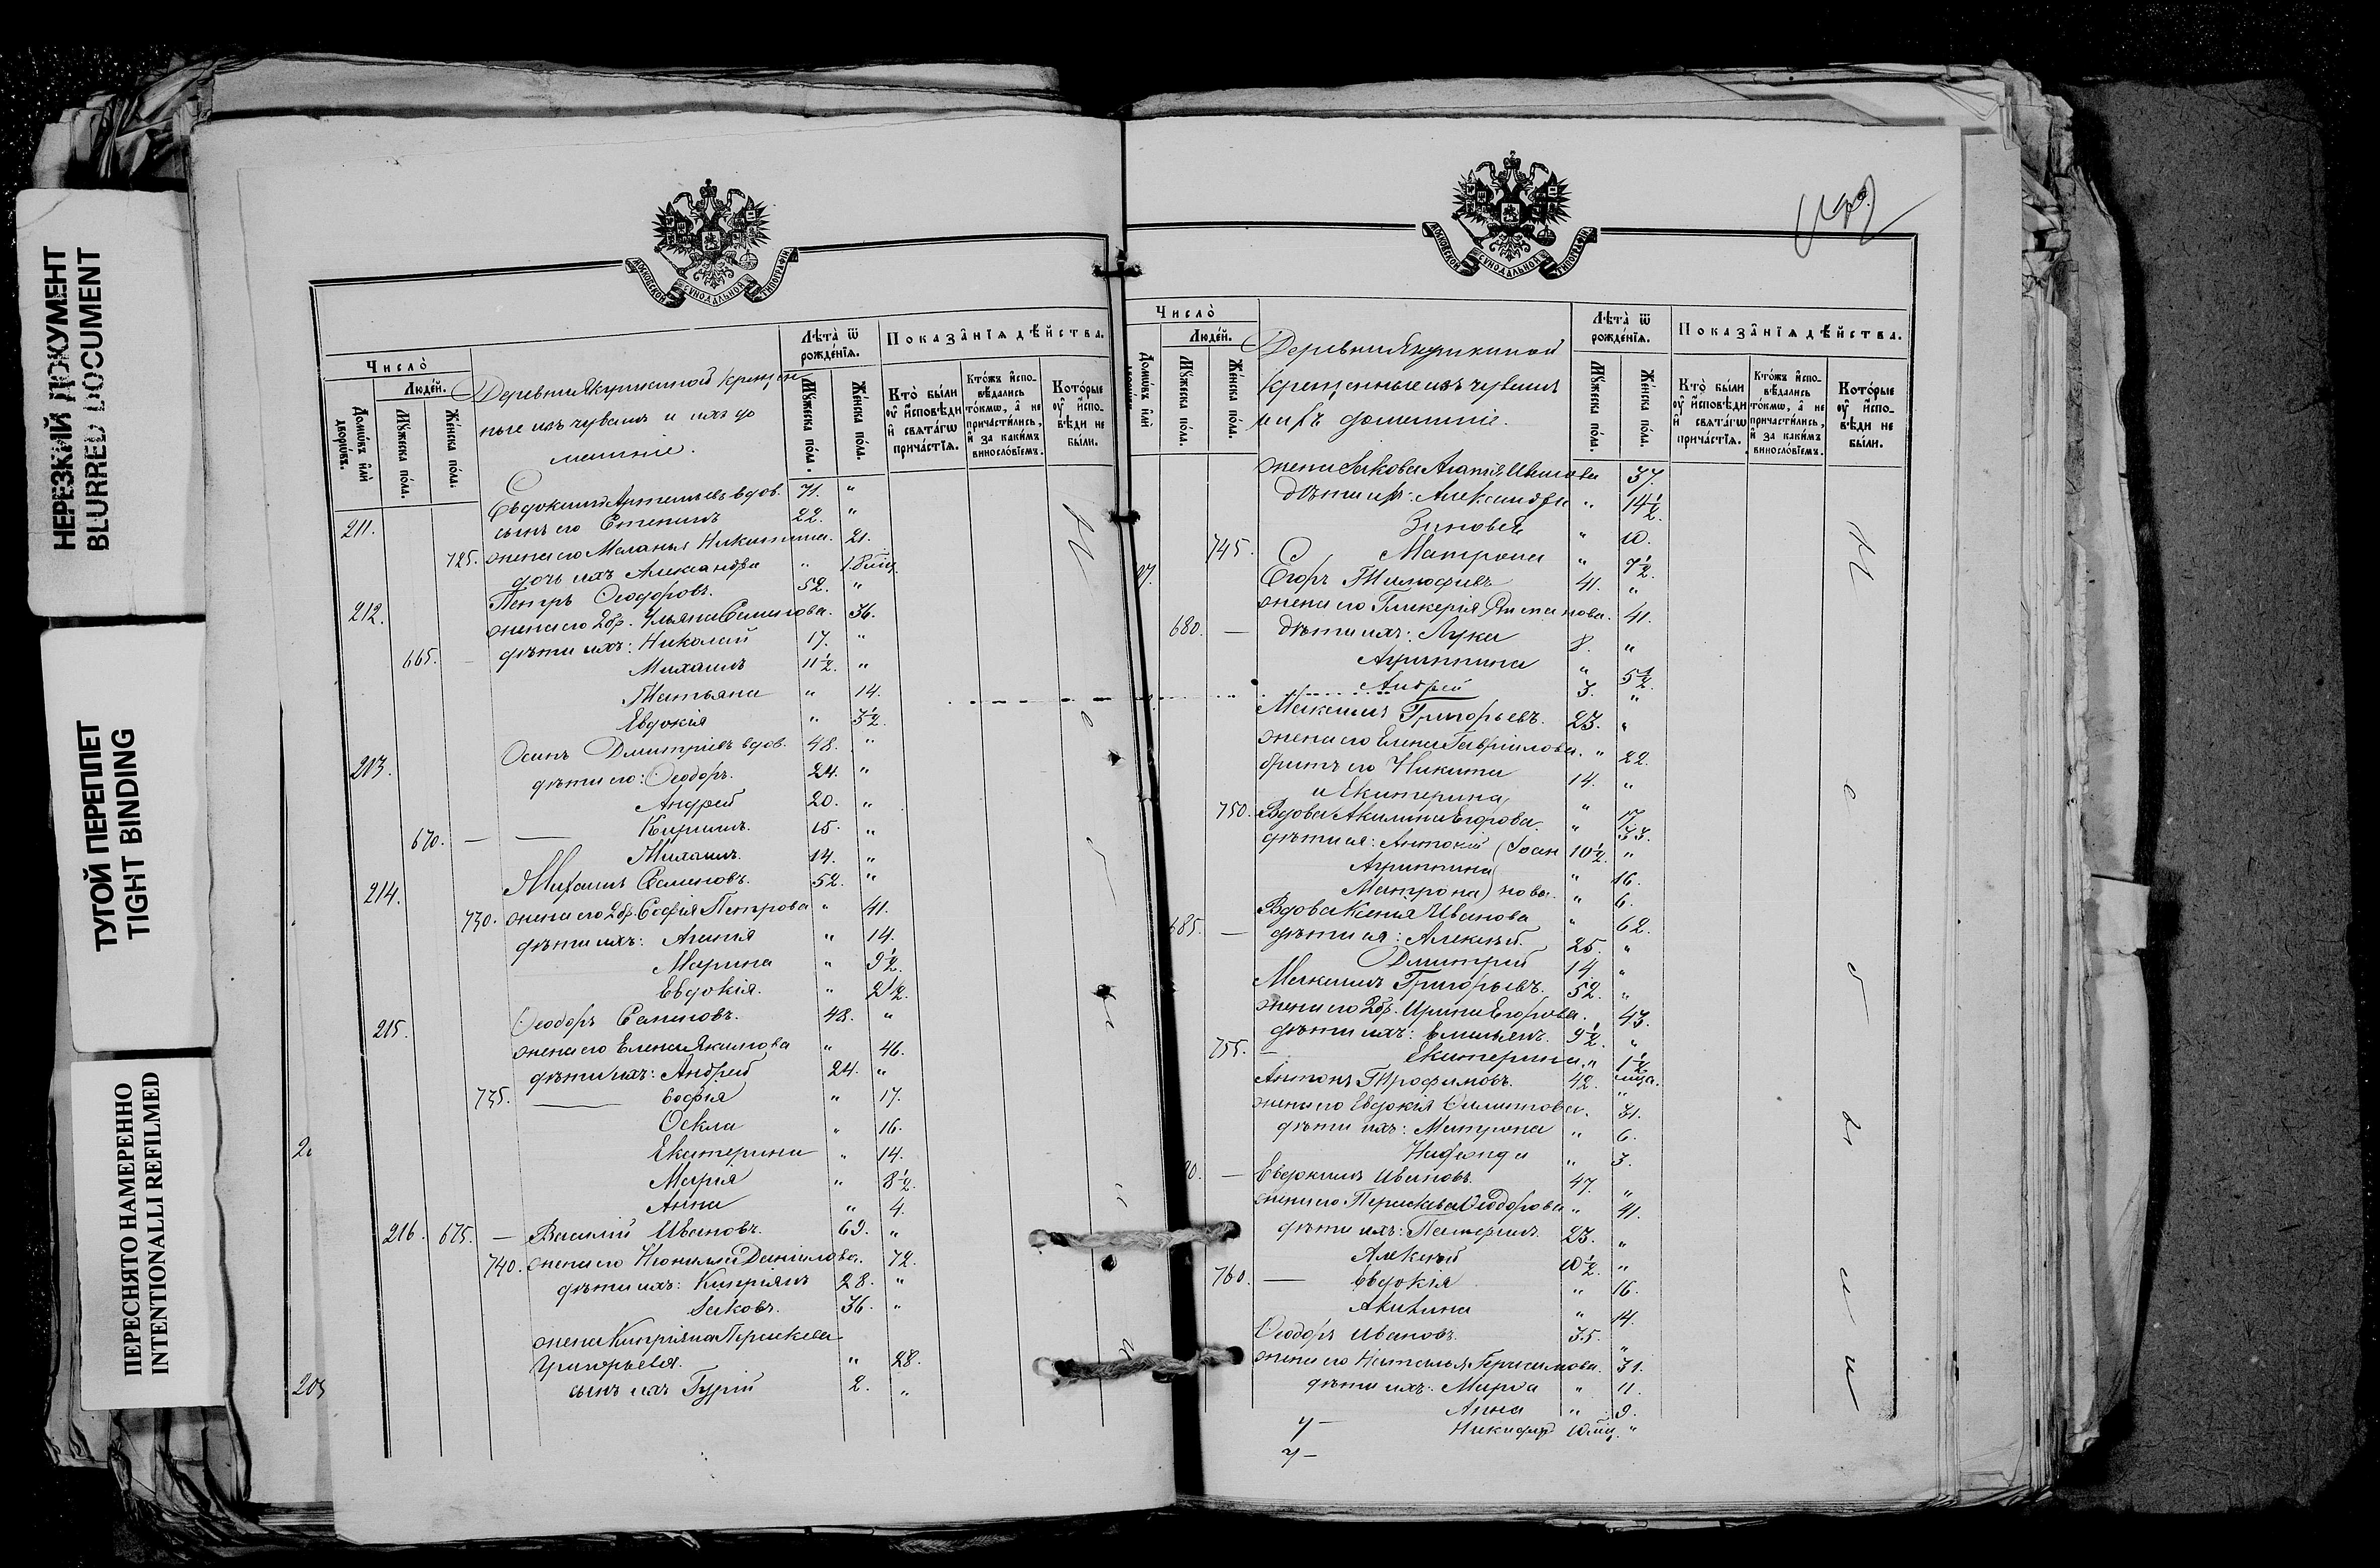 НЕРЕЗКИЙ ДОКУМЕНТ
BLURRED DOCUMENT
ТУГОЙ ПЕРЕПЛЕТ
TIGHT BINDING
ПЕРЕСНЯТО НАМЕРЕННО
INTENTIONALLI REFILMED
МОСКОВСКОЙ СУНОДАЛЬНОЙ ТИПОГРАФІИ
Число̀
Людей.
Домѡвъ и҆лѝ дворѡвъ.
Мꙋжеска пола.
Женска пола.
Деревни Якушкиной крещен
ные изъ чувашъ и ихъ фа
миліи.
Лѣта̀ ѿ рожденїѧ.
Мꙋжеска пола.
Женска пола.
Показанїѧ дѣйства.
Кто̀ были ᲂу҆ и҆сповѣди и҆ свѧтагѡ причастїѧ.
Ктожъ и҆сповѣдались токмѡ, а҆ не причастились, и҆ за какимъ винословїемъ.
Которые ᲂу҆ и҆сповѣди не были.
211. Евдокимъ Артемьевъ вдов. 71. "
сынъ его Степанъ 22. "
725. жена его Меланья Никитина. 21.
дочь ихъ Александра "
212. Петръ Ѳеодоровъ. 52. "
жена его 2 бр. Ульяна Семенова. 36.
665. дѣти ихъ: Николай 17. "
Михаилъ 11½. "
Татьяна " 14.
Евдокія " 3½.
213. Осипъ Дмитріевъ вдов. 48. "
дѣти его: Ѳеодоръ. 24. "
Андрей 20. "
670. — — Кириллъ. 15. "
Михаилъ. 14. "
214. Михаилъ Семеновъ. 52. "
730. жена его 2 бр. Софія Петрова " 41.
дѣти ихъ: Агапія " 14.
Марина " 9½.
Евдокія. " 2½.
215. Ѳеодоръ Семеновъ. 48. "
жена его Елена Якимова " 46.
дѣти ихъ: Андрей 24. "
735. — Софія " 17.
Ѳекла " 16.
Екатерина " 14.
Марія " 8½.
Анна " 4.
216. 675. — Василій Ивановъ. 69. "
740. жена его Неонилла Данилова. 72.
дѣти ихъ: Кипріянъ 28. "
Яковъ. 36. "
жена Кипріяна Параскева
Григорьева. " 28.
сынъ ихъ Гурій 2. "
МОСКОВСКОЙ СУНОДАЛЬНОЙ ТИПОГРАФІИ
Число̀
Людей.
Мꙋжеска пола.
Женска пола.
Деревни Якушкиной
крещенные изъ чувашъ
и ихъ фамиліи.
Лѣта̀ ѿ рожденїѧ.
Мꙋжеска пола.
Женска пола.
Показанїѧ дѣйства.
Кто̀ были ᲂу҆ и҆сповѣди и҆ свѧтагѡ причастїѧ.
Ктожъ и҆сповѣдались токмѡ, а҆ не причастились, и҆ за какимъ винословїемъ.
Которые ᲂу҆ и҆сповѣди не были.
жена Якова Агапія Иванова 37.
дѣти ихъ: Александра " 14½.
Зиновья " 10.
745. Матрона " 7½.
Егоръ Тимофеевъ 41. "
жена его Гликерія 41.
680. — дѣти ихъ: Лука 8. "
Агриппина " 5½.
Андрей 3. "
Максимъ Григорьевъ. 23. "
жена его Елена Гавріилова. " 22.
братъ его Никита 14. "
и Екатерина " 17.
750. Вдова Акилина Егорова. " 33.
дѣти ея: Антоній (Іоан 10½. "
Агриппина " 16.
Матрона) нова. " 6.
Вдова Ксенія Иванова " 62.
685. — дѣти ея: Алексѣй. 25. "
Дмитрій 14. "
Максимъ Григорьевъ. 52. "
жена его 2 бр. Ирина Егорова. 43.
дѣти ихъ: Емельянъ. 9½. "
755. — Екатерина " 1½
Антонъ Трофимовъ. 42. "
жена его Евдокія Филиппова. 31.
дѣти ихъ: Матрона " 6.
" 3.
90. — Евдокимъ Ивановъ. 47. "
жена его Параскева Ѳеодорова " 41.
дѣти ихъ: 23. "
Алексѣй 10½. "
760. — Евдокія " 16.
Акилина " 14.
Ѳеодоръ Ивановъ. 35. "
жена его Наталья Герасимова. 31.
дѣти ихъ: Марѳа " 11.
Анна " 9.
Никифоръ 10 "